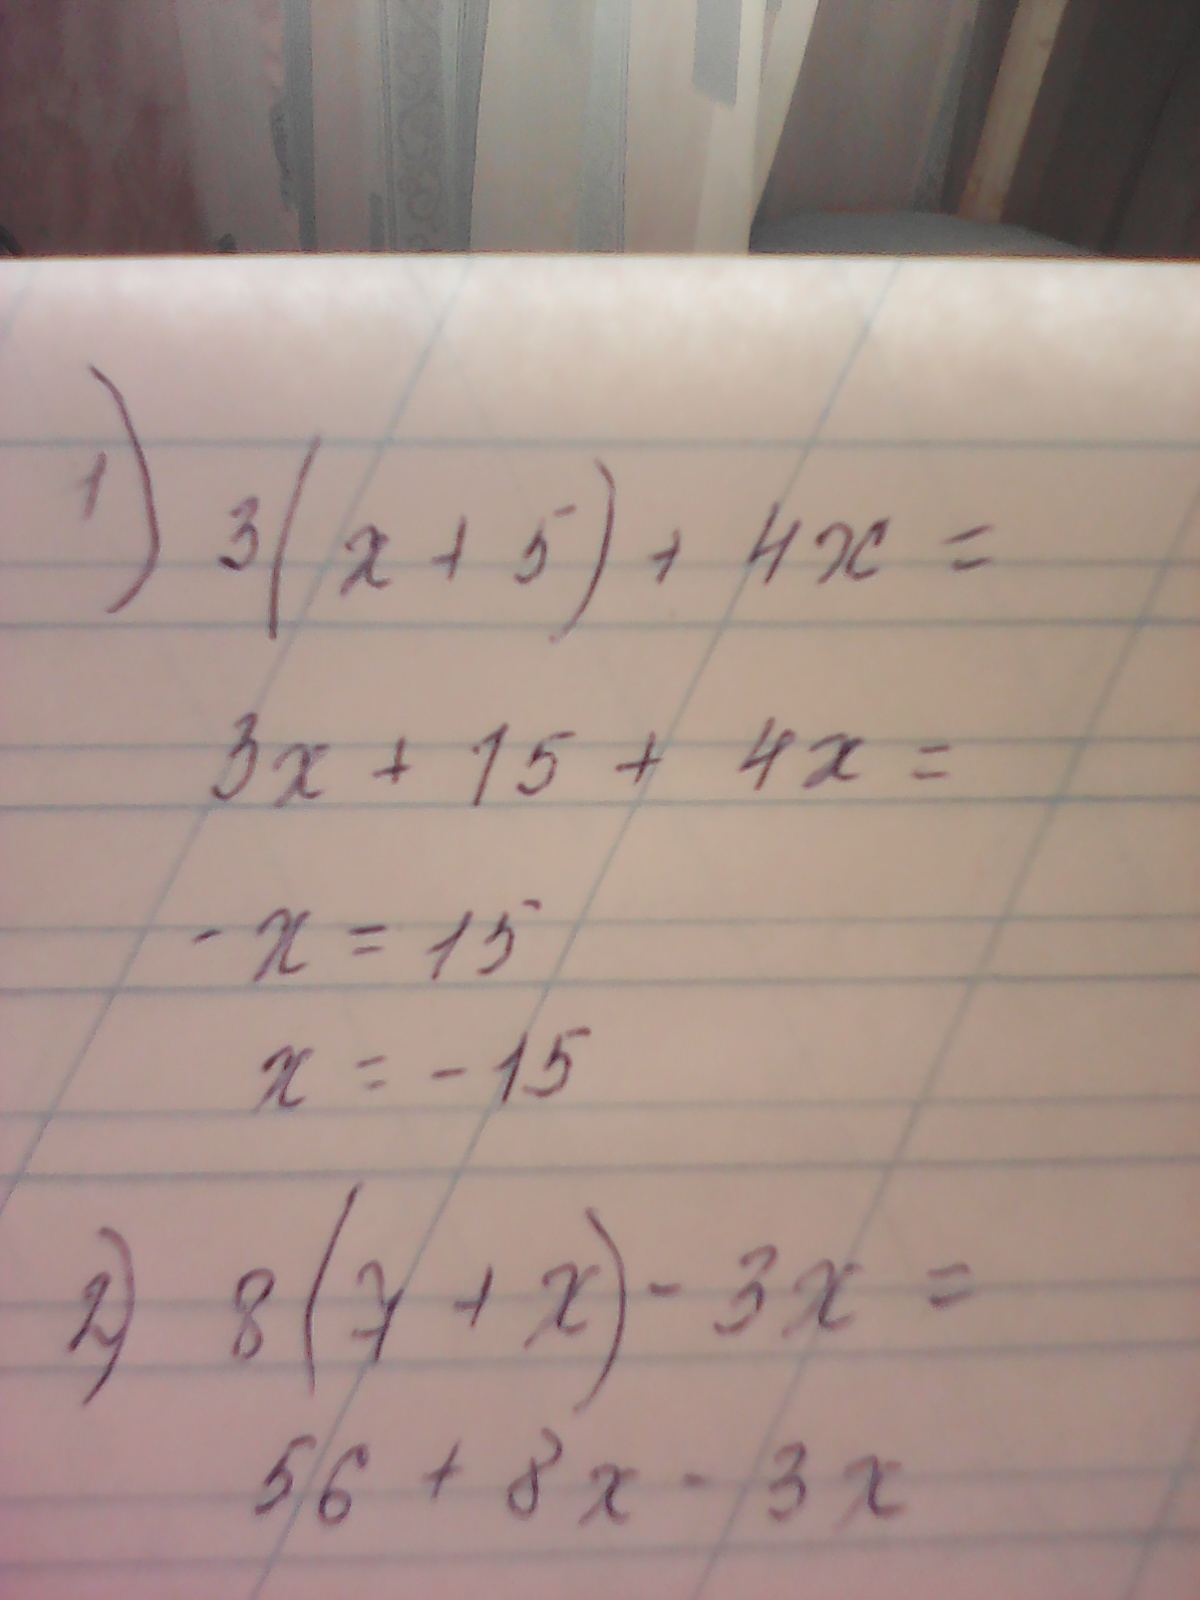 1) 3(x + 5) + 4x =
3x + 15 + 4x =
- x = 15
x = - 15
2) 8(7 + x) - 3x =
56 + 8x - 3x